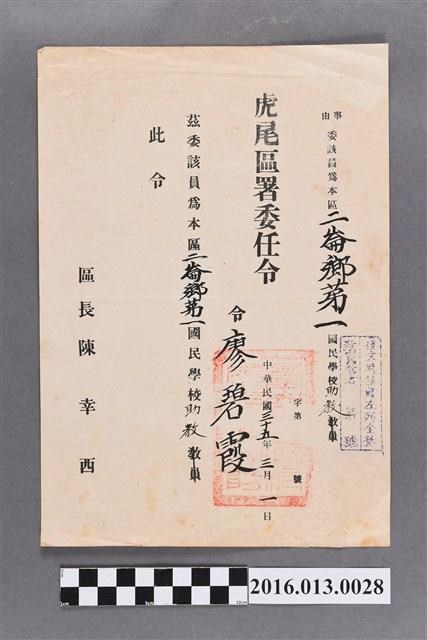 事由
委該員爲本區二崙鄉第一國民學校助教教員
虎尾區署委任令
字第 號
中華民國三十五年三月一日
令 廖碧霞
茲委該員爲本區二崙鄉第一國民學校助教教員
此令
區長陳幸西
2016.013.0028